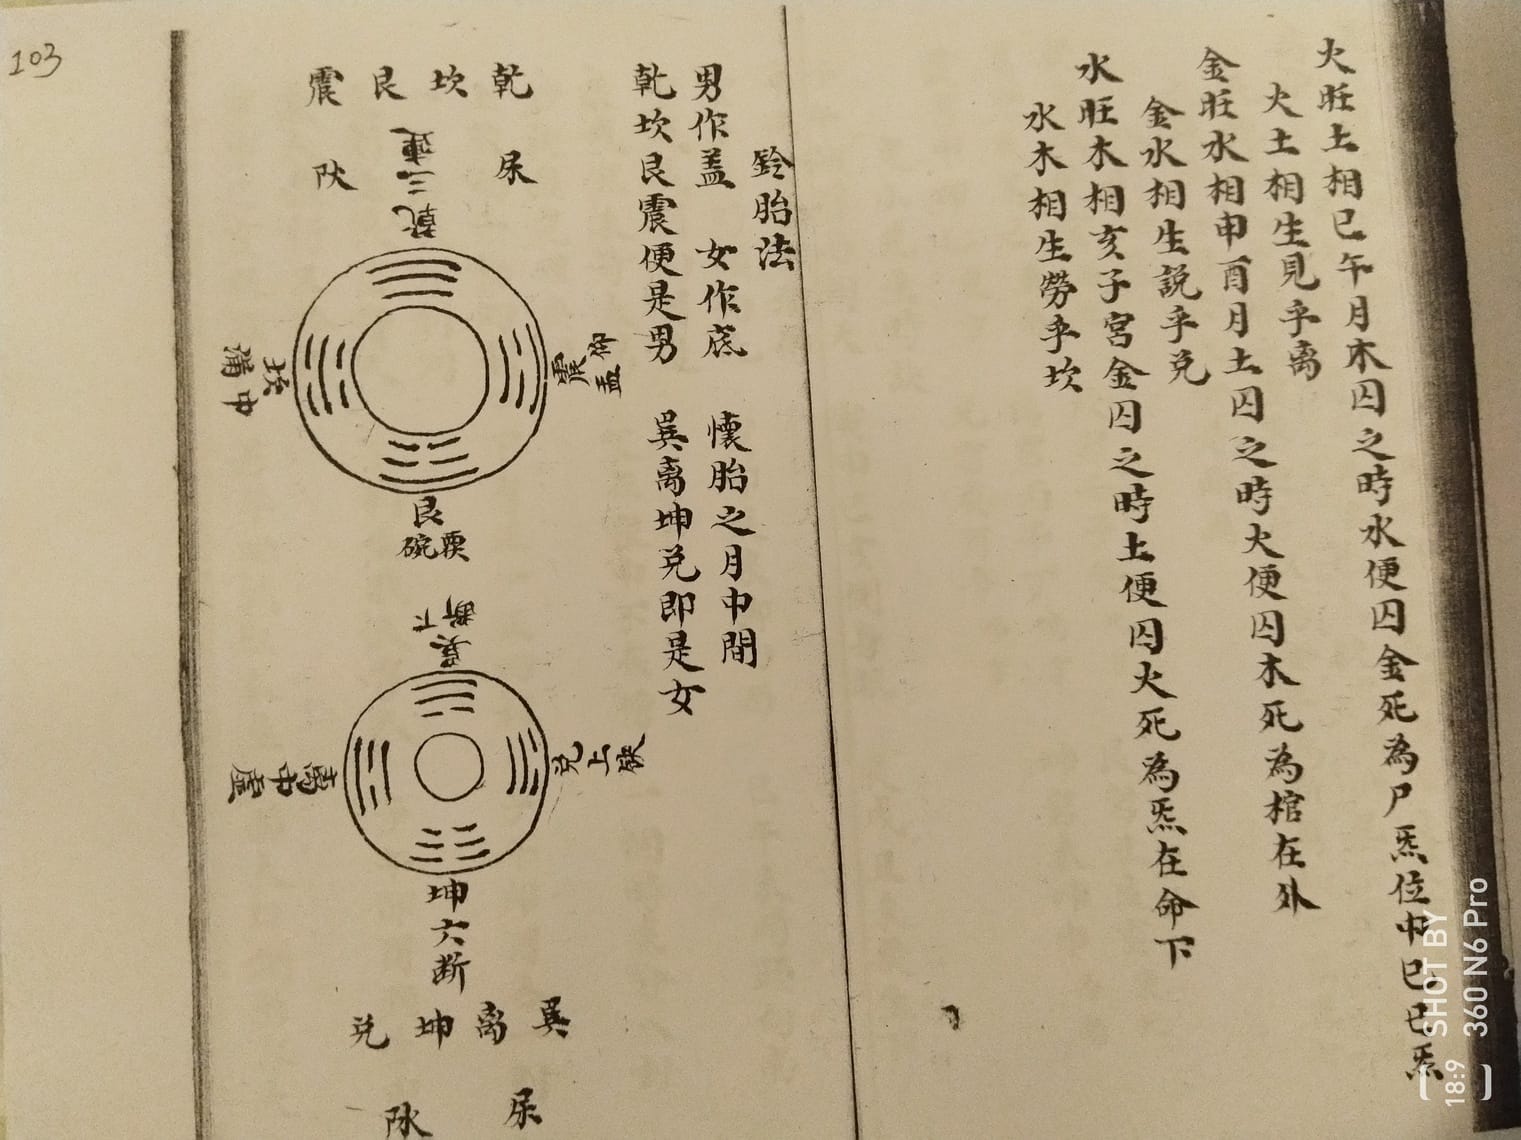 火旺土相巳午月木囚之時水便囚金死為尸炁位中巳巳炁
火土相生見乎离
金旺水相申酉月土囚之時火便囚木死為棺在外
金水相生説乎兑
水旺木相亥子宮金囚之時土便囚火死為炁在命下
水木相生勞乎坎
鈴胎法
男作蓋 女作底 懷胎之月中間
乾坎艮震便是男 巽离坤兑即是女
乾 坎 艮 震
乾三連
震仰盂
坎中滿
艮覆碗
巽下斷
兑上缺
离中虛
坤六断
巽 离 坤 兑
103
SHOT BY
360 N6 Pro
18:9